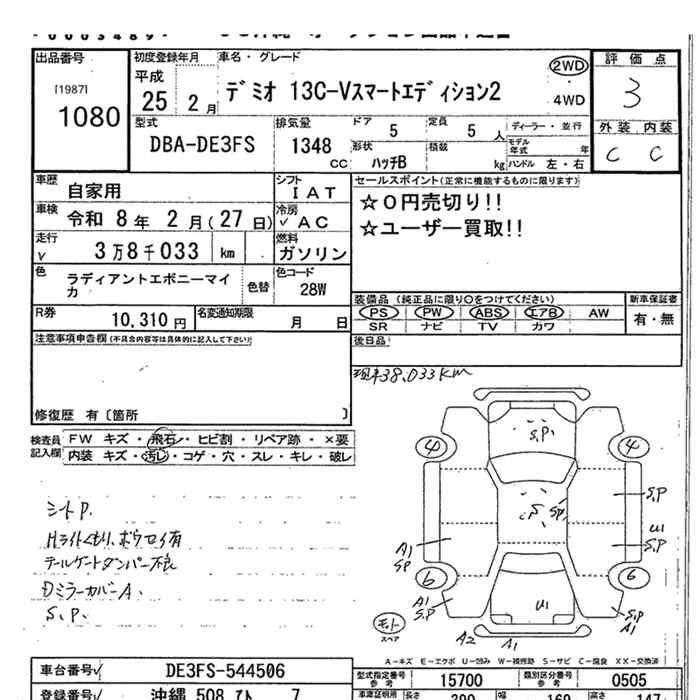 0003489
出品番号
[1987]
1080
初度登録年月
平成
25 2月
車名・グレード
デミオ 13C-Vスマートエディション2
2WD
4WD
評価点
3
型式
DBA-DE3FS
排気量
1348
CC
ドア
5
定員
5 人
形状
ハッチB
積載
kg
ディーラー・並行
モデル年式
年
ハンドル 左・右
外装 内装
C C
車歴
自家用
シフト
IAT
車検
令和 8年 2月(27日)
冷房
✓ AC
走行
✓ 3万8千033 km
燃料
ガソリン
色
ラディアントエボニーマイカ
色替
色コード
28W
R券
10,310円
名変通知期限
月 日
セールスポイント(正常に機能するものに限ります)
☆0円売切り!!
☆ユーザー買取!!
装備品 (純正品に限り○をつけてください)
PS PW ABS エアB AW
SR ナビ TV カワ
新車保証書
有・無
後日品
注意事項申告欄(不具合内容等は具体的に記入して下さい)
修復歴 有〔箇所 〕
検査員記入欄
FW キズ・飛石・ヒビ割・リペア跡・×要
内装 キズ・汚レ・コゲ・穴・スレ・キレ・破レ
現車38,033KM
シートP.
Hライトくもり、ボウセイ有
テールゲートダンパー不良
Dミラーカバー A.
S.P.
4
4
S.P.
S.P
S.P
U1
S.P
A1
S.P
6
6
A1
S.P
U1
S.P
A1
A2
A1
スペア
A-キズ E-エクボ U-凹み W-補修跡 S-サビ C-腐食 XX-交換済
車台番号
DE3FS-544506
型式指定番号
参考
15700
類別区分番号
参考
0505
登録番号
沖縄 508
7
車庫証明用
390
幅
169
高さ
147